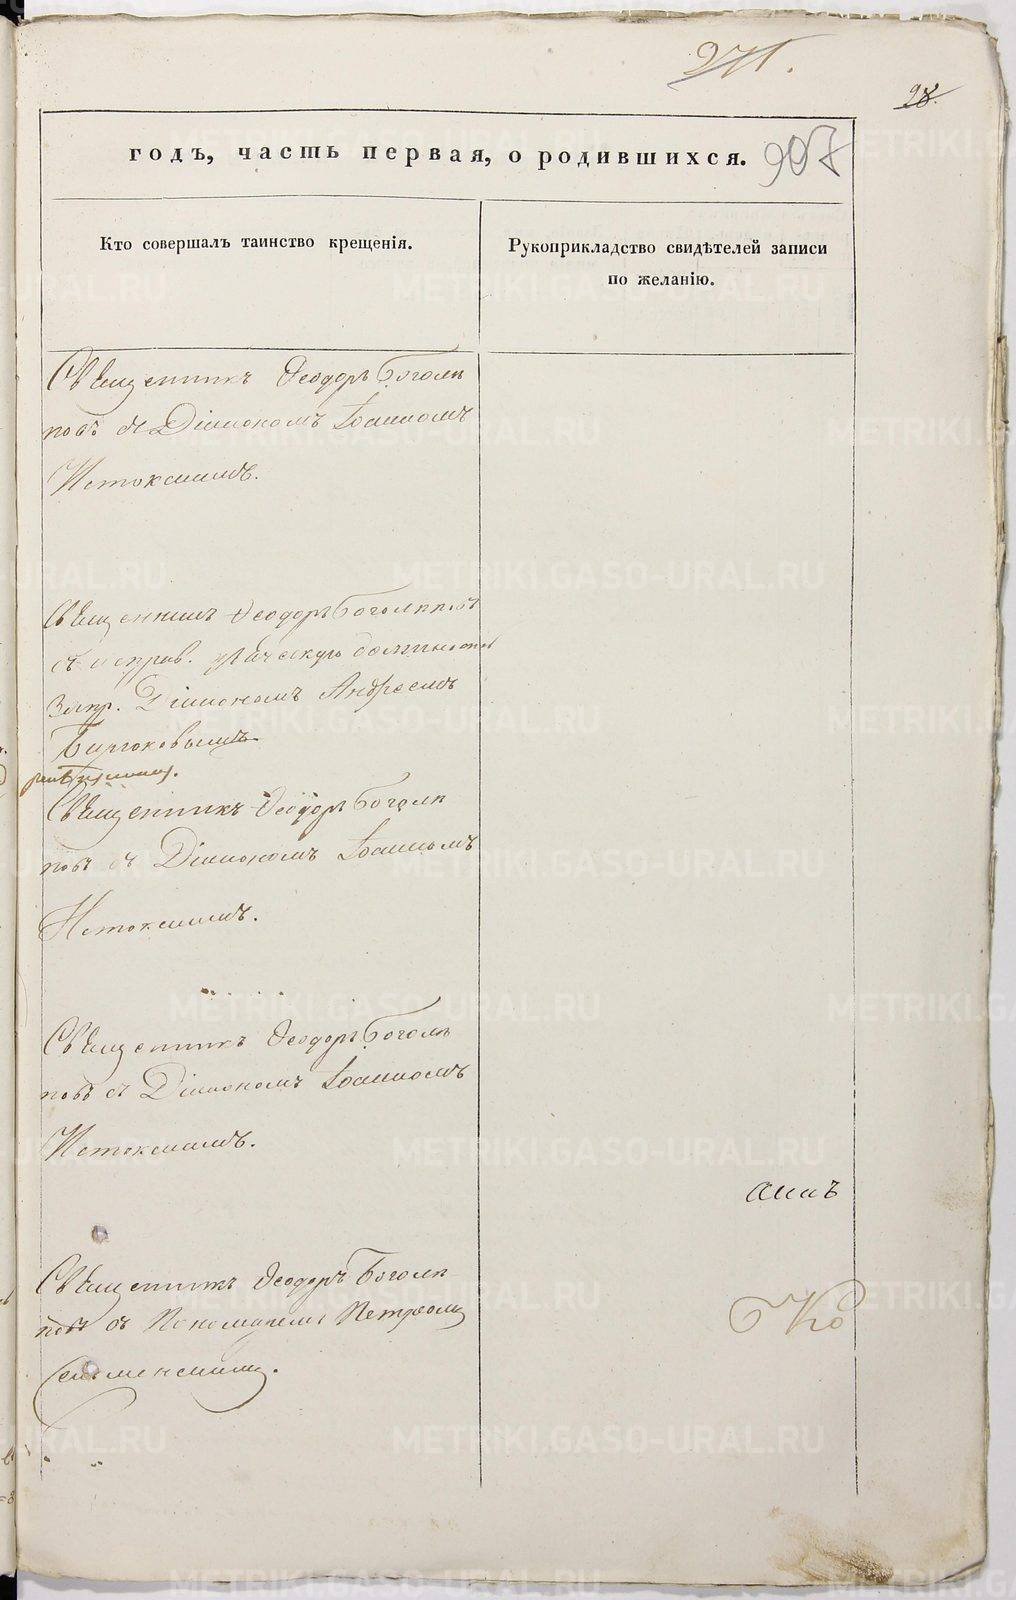 271.
28.
годъ, часть первая, о родившихся. 907
Кто совершалъ таинство крещенія.
Рукоприкладство свидѣтелей записи
по желанію.
Священникъ Ѳеодоръ Боголѣ
повъ съ Діакономъ Іоанномъ
Истокскимъ.
Священникъ Ѳеодоръ Боголѣповъ
съ исправ. должность
Діакономъ Андреемъ
Бирюковымъ
Священникъ Ѳеодоръ Боголѣ
повъ съ Діакономъ Іоанномъ
Истокскимъ.
Священникъ Ѳеодоръ Боголѣ
повъ съ Діакономъ Іоанномъ
Истокскимъ.
Священникъ Ѳеодоръ Боголѣ
повъ съ Пономаремъ Петромъ
METRIKI.GASO-URAL.RU